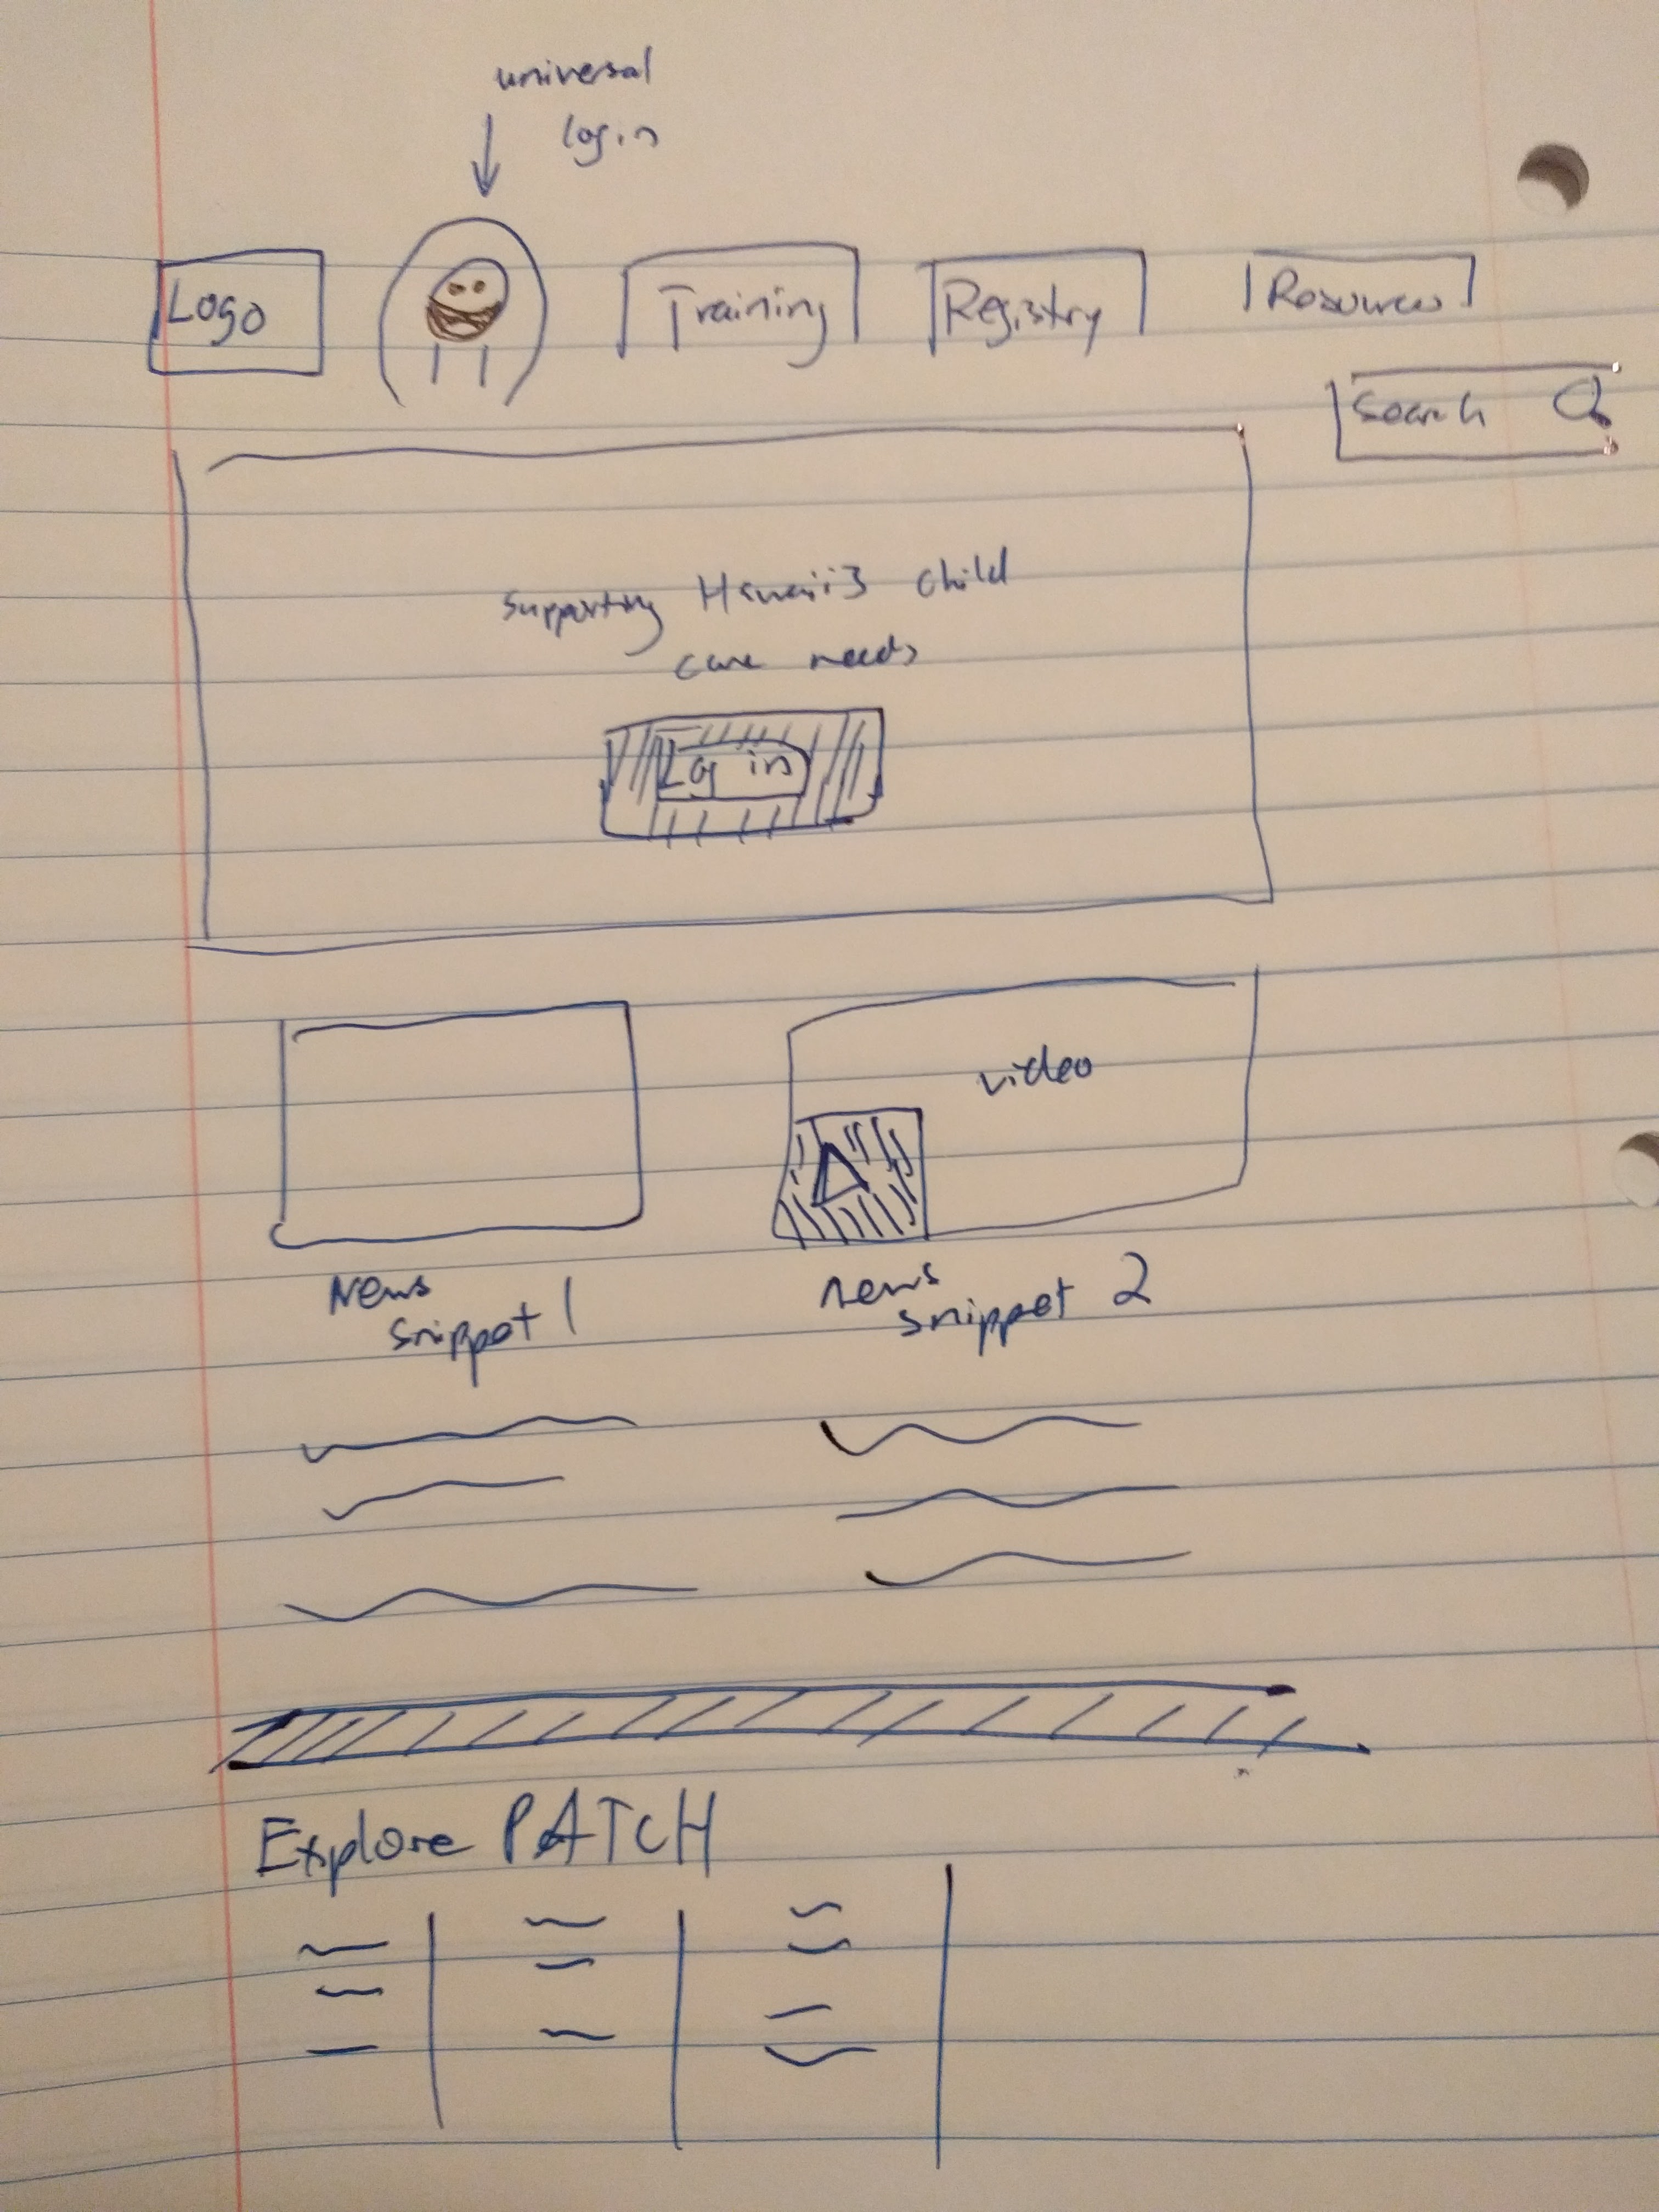 universal
login
Logo
Training
Registry
Resources
Search
supporting Hawaii's child
care needs
Log in
video
News
Snippet 1
news
snippet 2
Explore PATCH